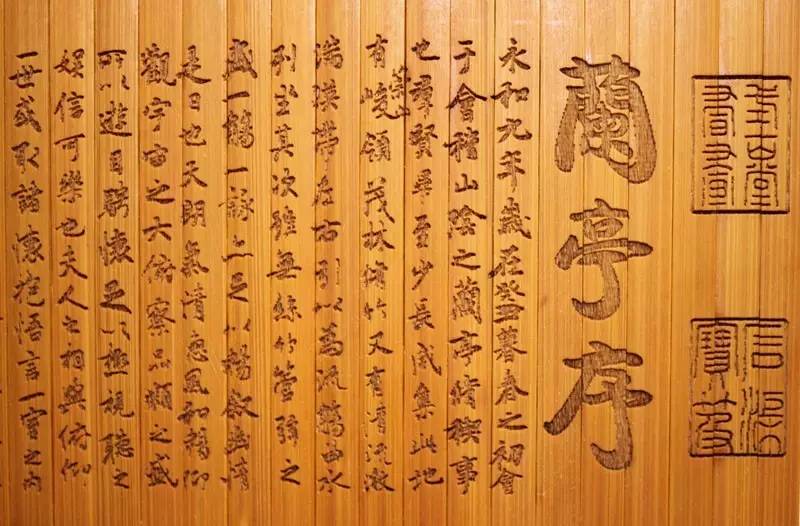 蘭亭序
永和九年歲在癸丑暮春之初會
于會稽山陰之蘭亭脩禊事
也羣賢畢至少長咸集此地
有崇山峻領茂林脩竹又有清流激
湍暎帶左右引以為流觴曲水
列坐其次雖無絲竹管弦之
盛一觴一詠亦足以暢敘幽情
是日也天朗氣清惠風和暢仰
觀宇宙之大俯察品類之盛
所以遊目騁懷足以極視聽之
娛信可樂也夫人之相與俯仰
一世或取諸懷抱悟言一室之內